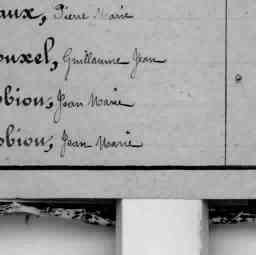 aux, Pierre Marie
ouxel, Guillaume Jean
obion, Jean Marie
obion, Jean Marie